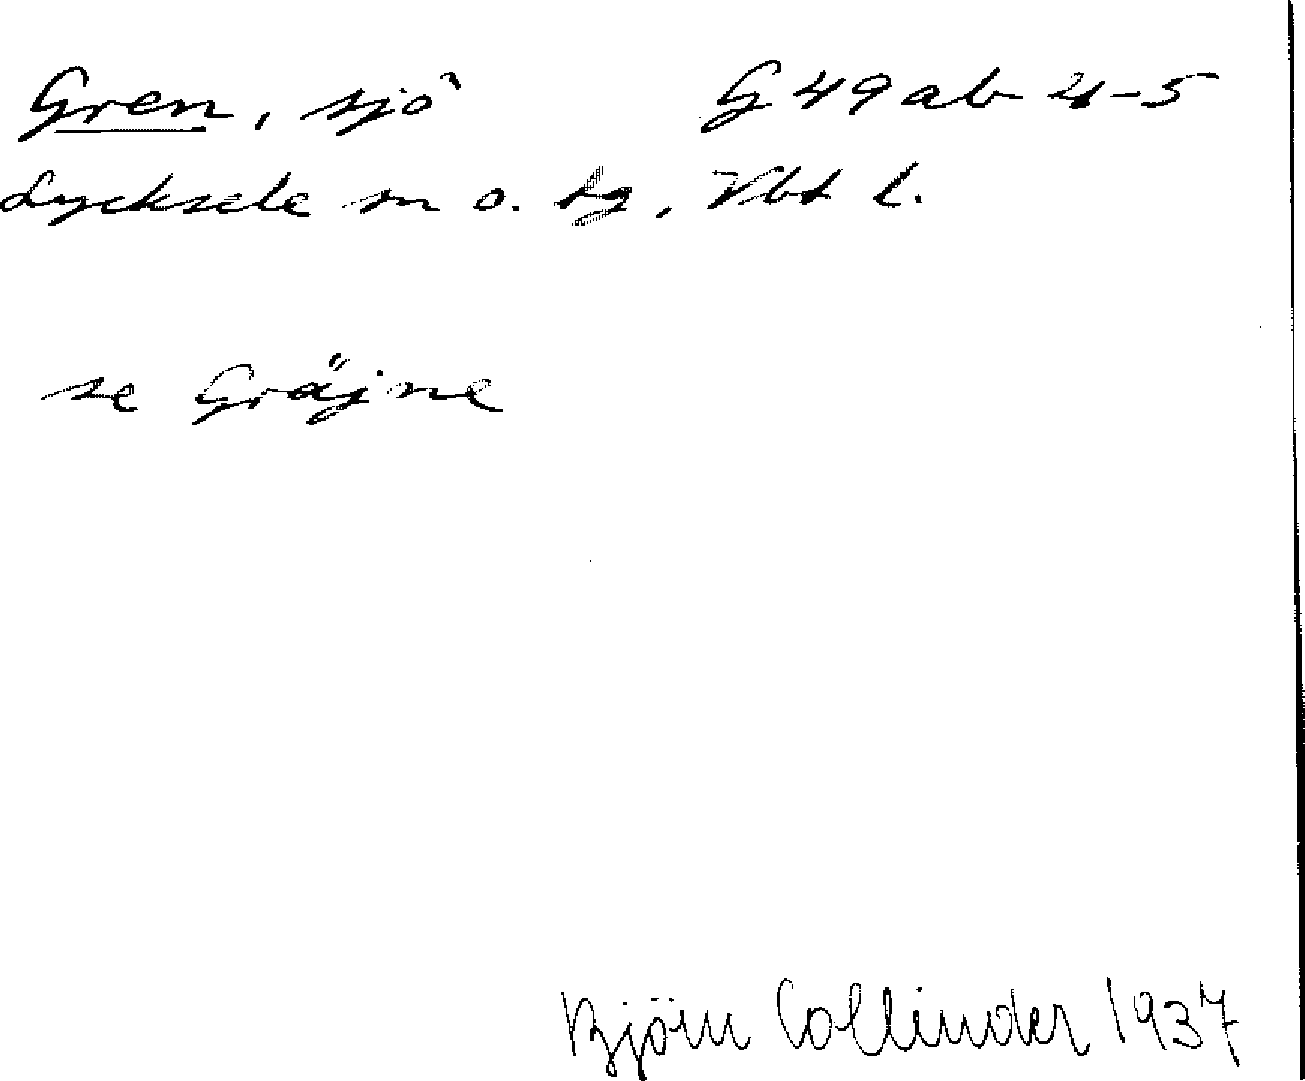 Gren, sjö G 49 ab 4-5
Lycksele sn o. tg, Vbt l.
se Gräjne
Björn Collinder 1937